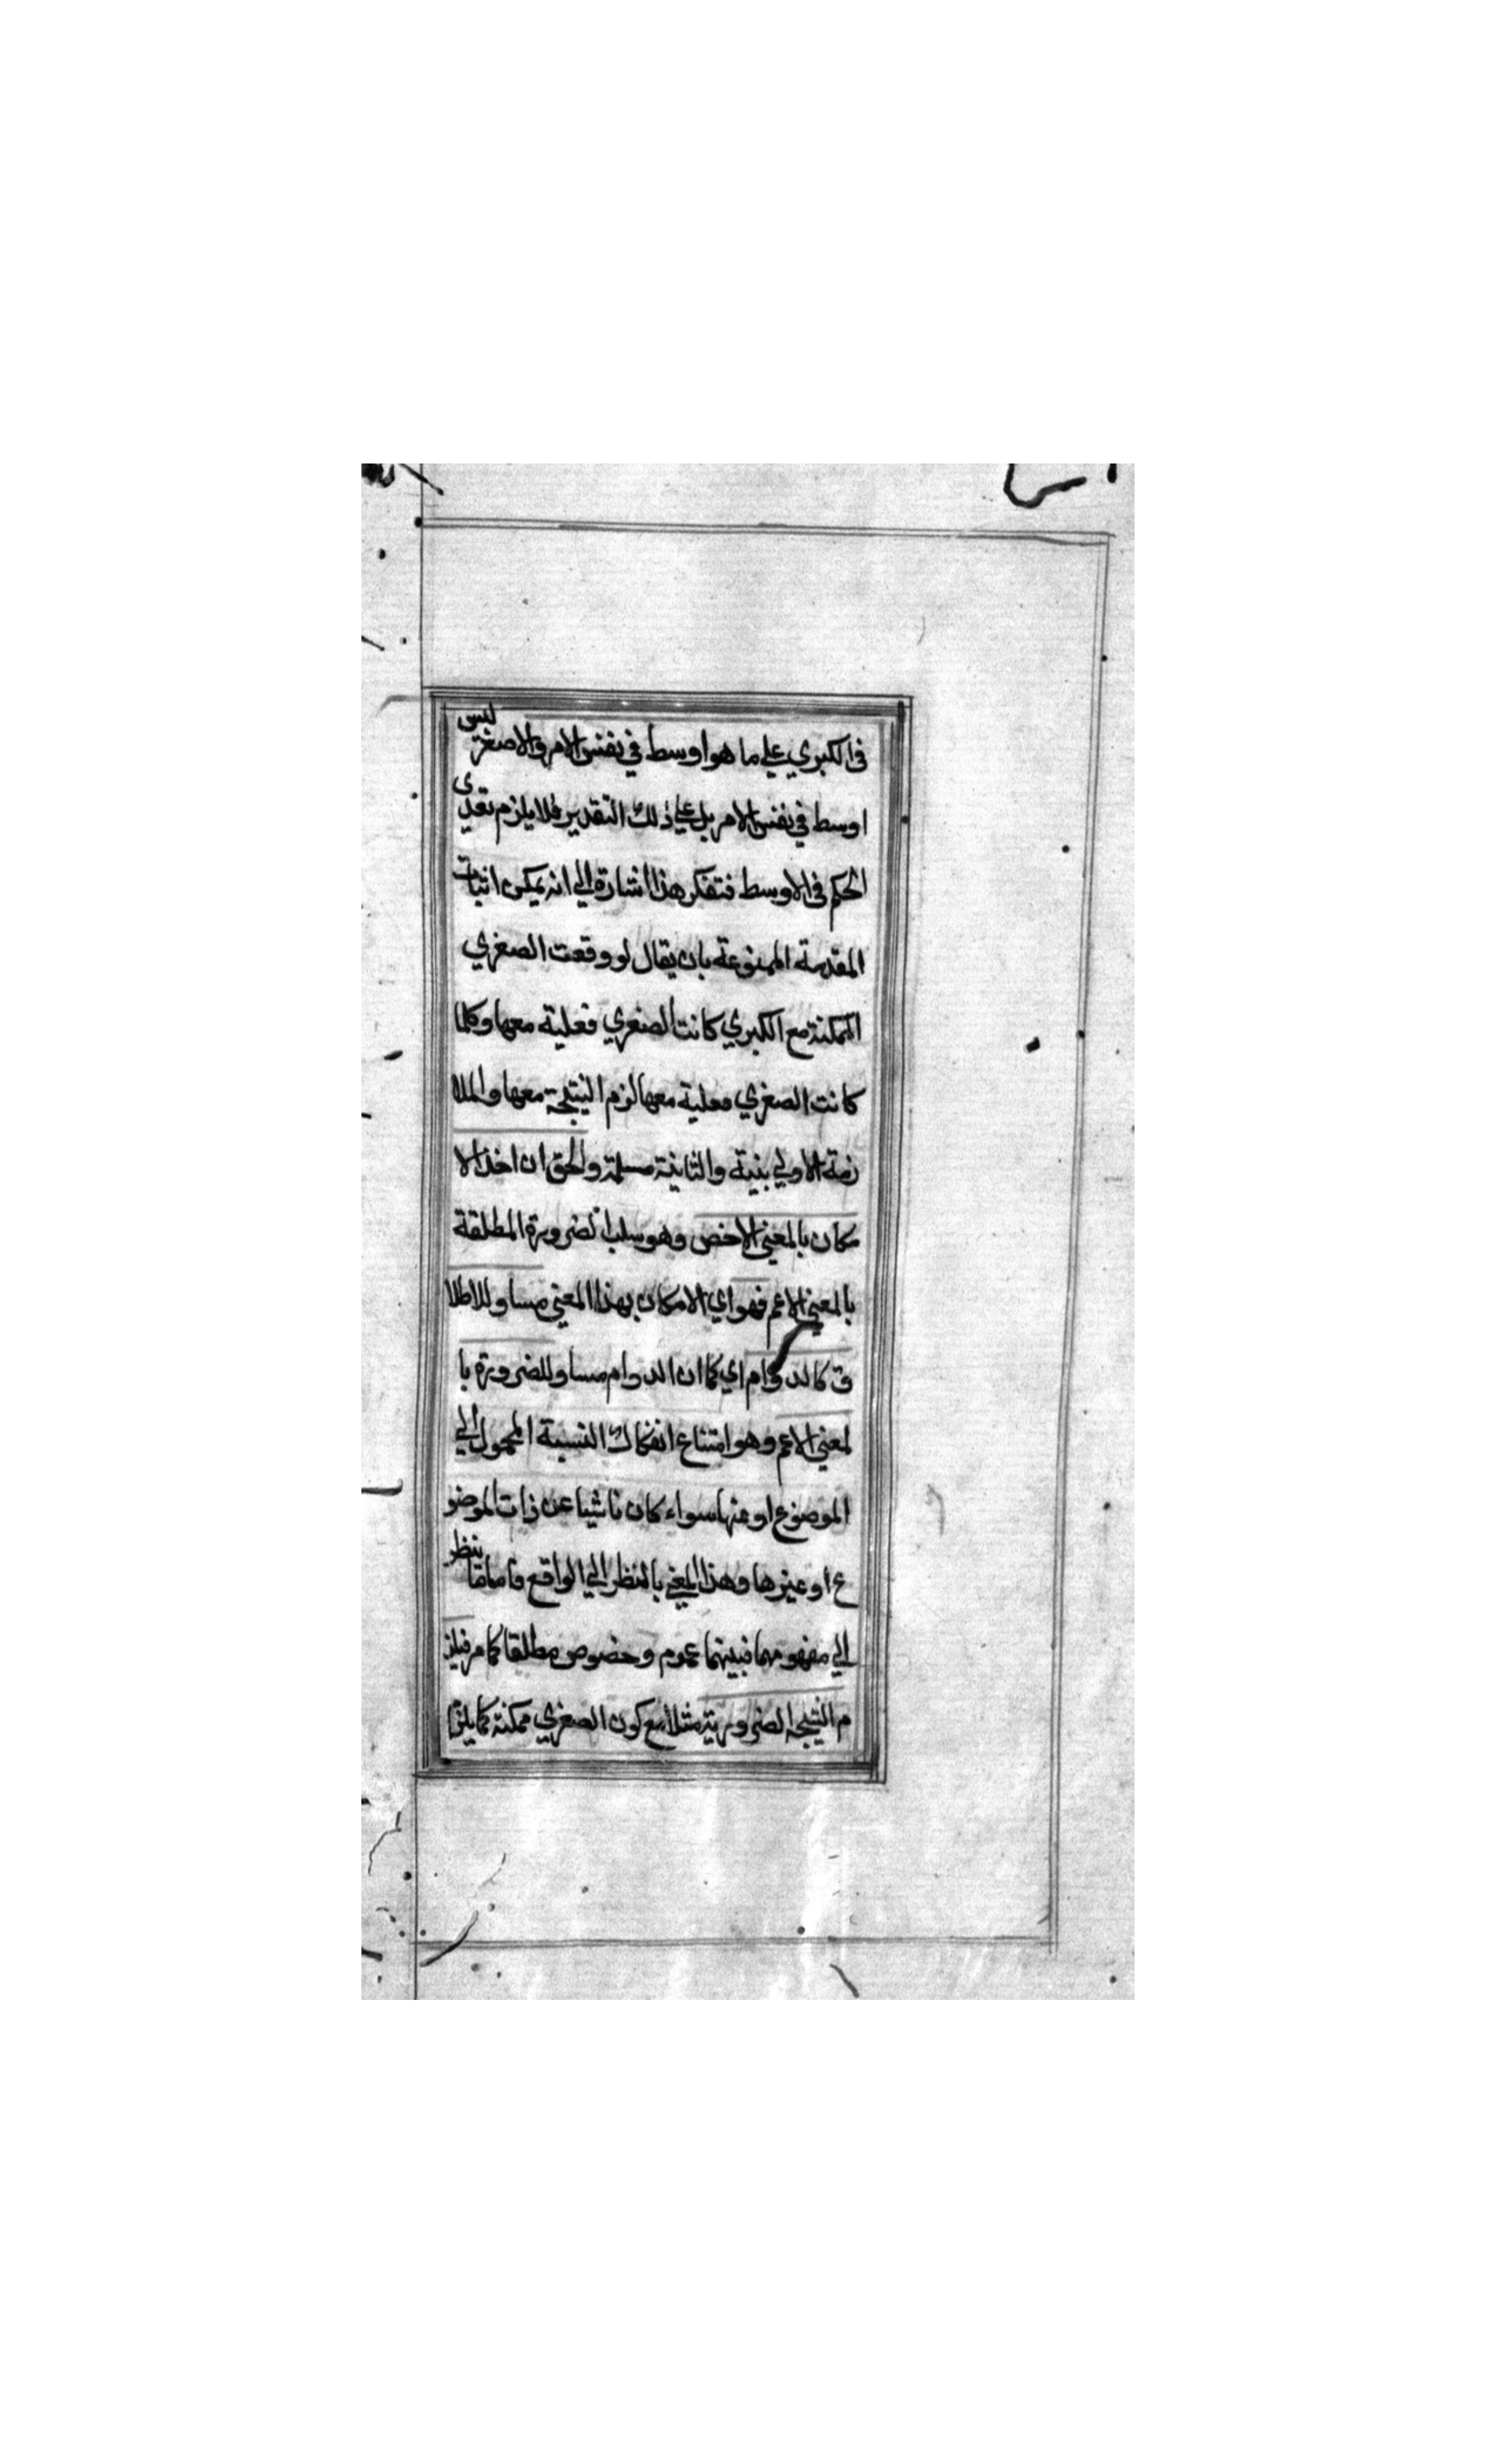 في الكبري علي ما هو اوسط في نفس الامر والاصغر ليس
اوسط في نفس الامر بل علي ذلك التقدير فلا يلزم تعدي
الحكم في الاوسط فتفكر هذا اشارة الي انه يمكن اثبات
المقدمة الممنوعة بان يقال لو وقعت الصغري
الممكنة مع الكبري كانت الصغري فعلية معها وكلما
كانت الصغري فعلية معها لزم النتيجة معها والملا
زمة الاولي بنية والثانية مسلمة والحق ان اخذ الا
مكان بالمعني الاخص وهو سلب الضرورة المطلقة
بالمعني الاعم فهو اي الامكان بهذا المعني مساو للاطلا
ق كالدوام اي كما ان الدوام مساو للضرورة با
لمعني الاعم وهو امتناع انفكاك النسبة المحمول الي
الموضوع او عنها سواء كان ناشيا عن ذات الموضو
ع او غيرها وهذا المعني بالنظر الي الواقع واما بنظر
الي مفهومهما فبينهما عموم وخصوص مطلقا كما مر فيلز
م النتيجة الضرورية مثلا مع كون الصغري ممكنة كما يلزم